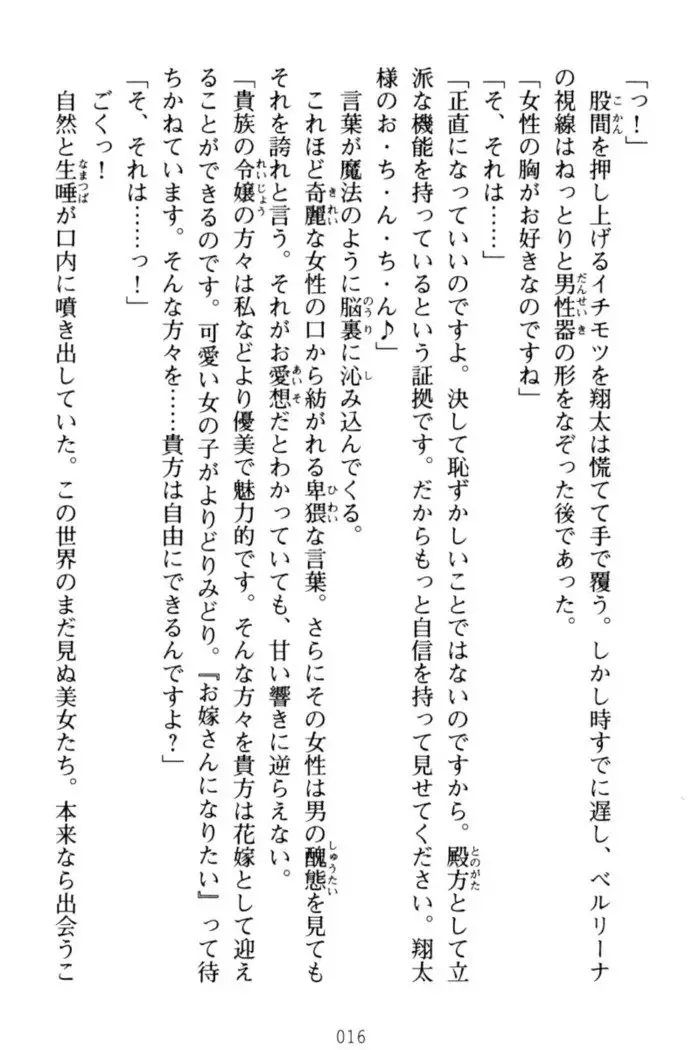 「っ！」
股間を押し上げるイチモツを翔太は慌てて手で覆う。しかし時すでに遅し、ベルリーナ
の視線はねっとりと男性器の形をなぞった後であった。
「女性の胸がお好きなのですね」
「そ、それは……」
「正直になっていいのですよ。決して恥ずかしいことではないのですから。殿方として立
派な機能を持っているという証拠です。だからもっと自信を持って見せてください。翔太
様のお・ち・ん・ち・ん♪」
言葉が魔法のように脳裏に沁み込んでくる。
これほど奇麗な女性の口から紡がれる卑猥な言葉。さらにその女性は男の醜態を見ても
それを誇れと言う。それがお愛想だとわかっていても、甘い響きに逆らえない。
「貴族の令嬢の方々は私などより優美で魅力的です。そんな方々を貴方は花嫁として迎え
ることができるのです。可愛い女の子がよりどりみどり。『お嫁さんになりたい』って待
ちかねています。そんな方々を……貴方は自由にできるんですよ？」
「そ、それは……っ！」
ごくっ！
自然と生唾が口内に噴き出していた。この世界のまだ見ぬ美女たち。本来なら出会うこ
016